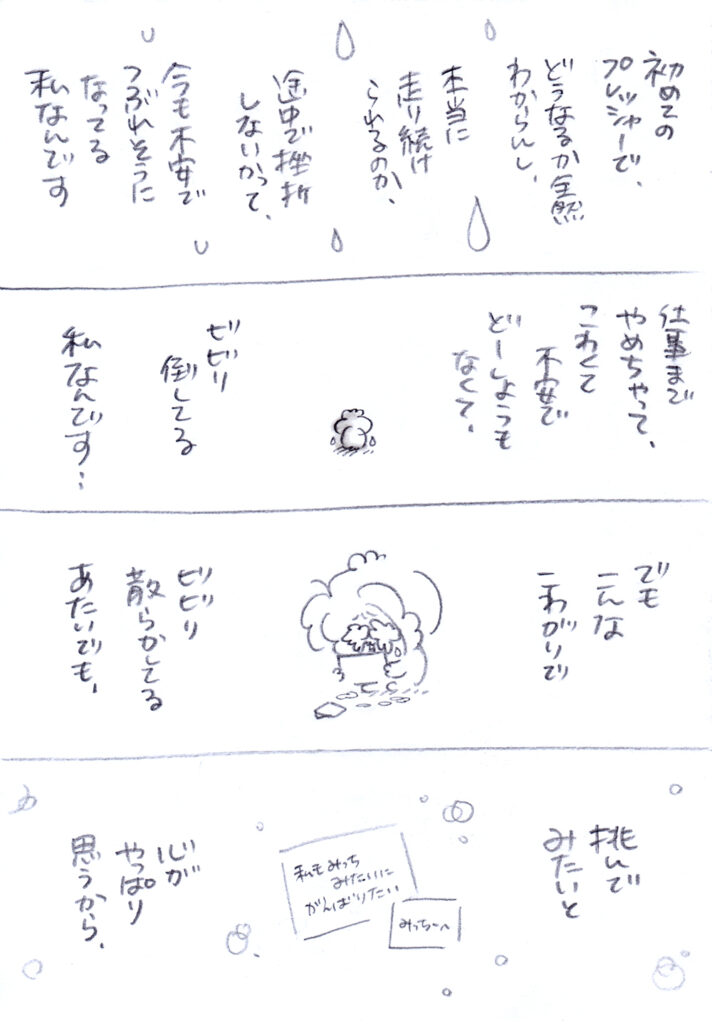 初めての
プレッシャーで、
どうなるか全然
わからんし、
本当に
走り続け
られるのか、
途中で挫折
しないかって、
今も不安で
つぶれそうに
なってる
私なんです
仕事まで
やめちゃって、
こわくて
不安で
どーしようも
なくて、
ビビリ
倒してる
私なんです…
でも
こんな
こわがりで
ビビり
散らかしてる
あたいでも、
挑んで
みたいと
私もみっち
みたいに
がんばりたい
みっちーへ
心が
やっぱり
思うから、